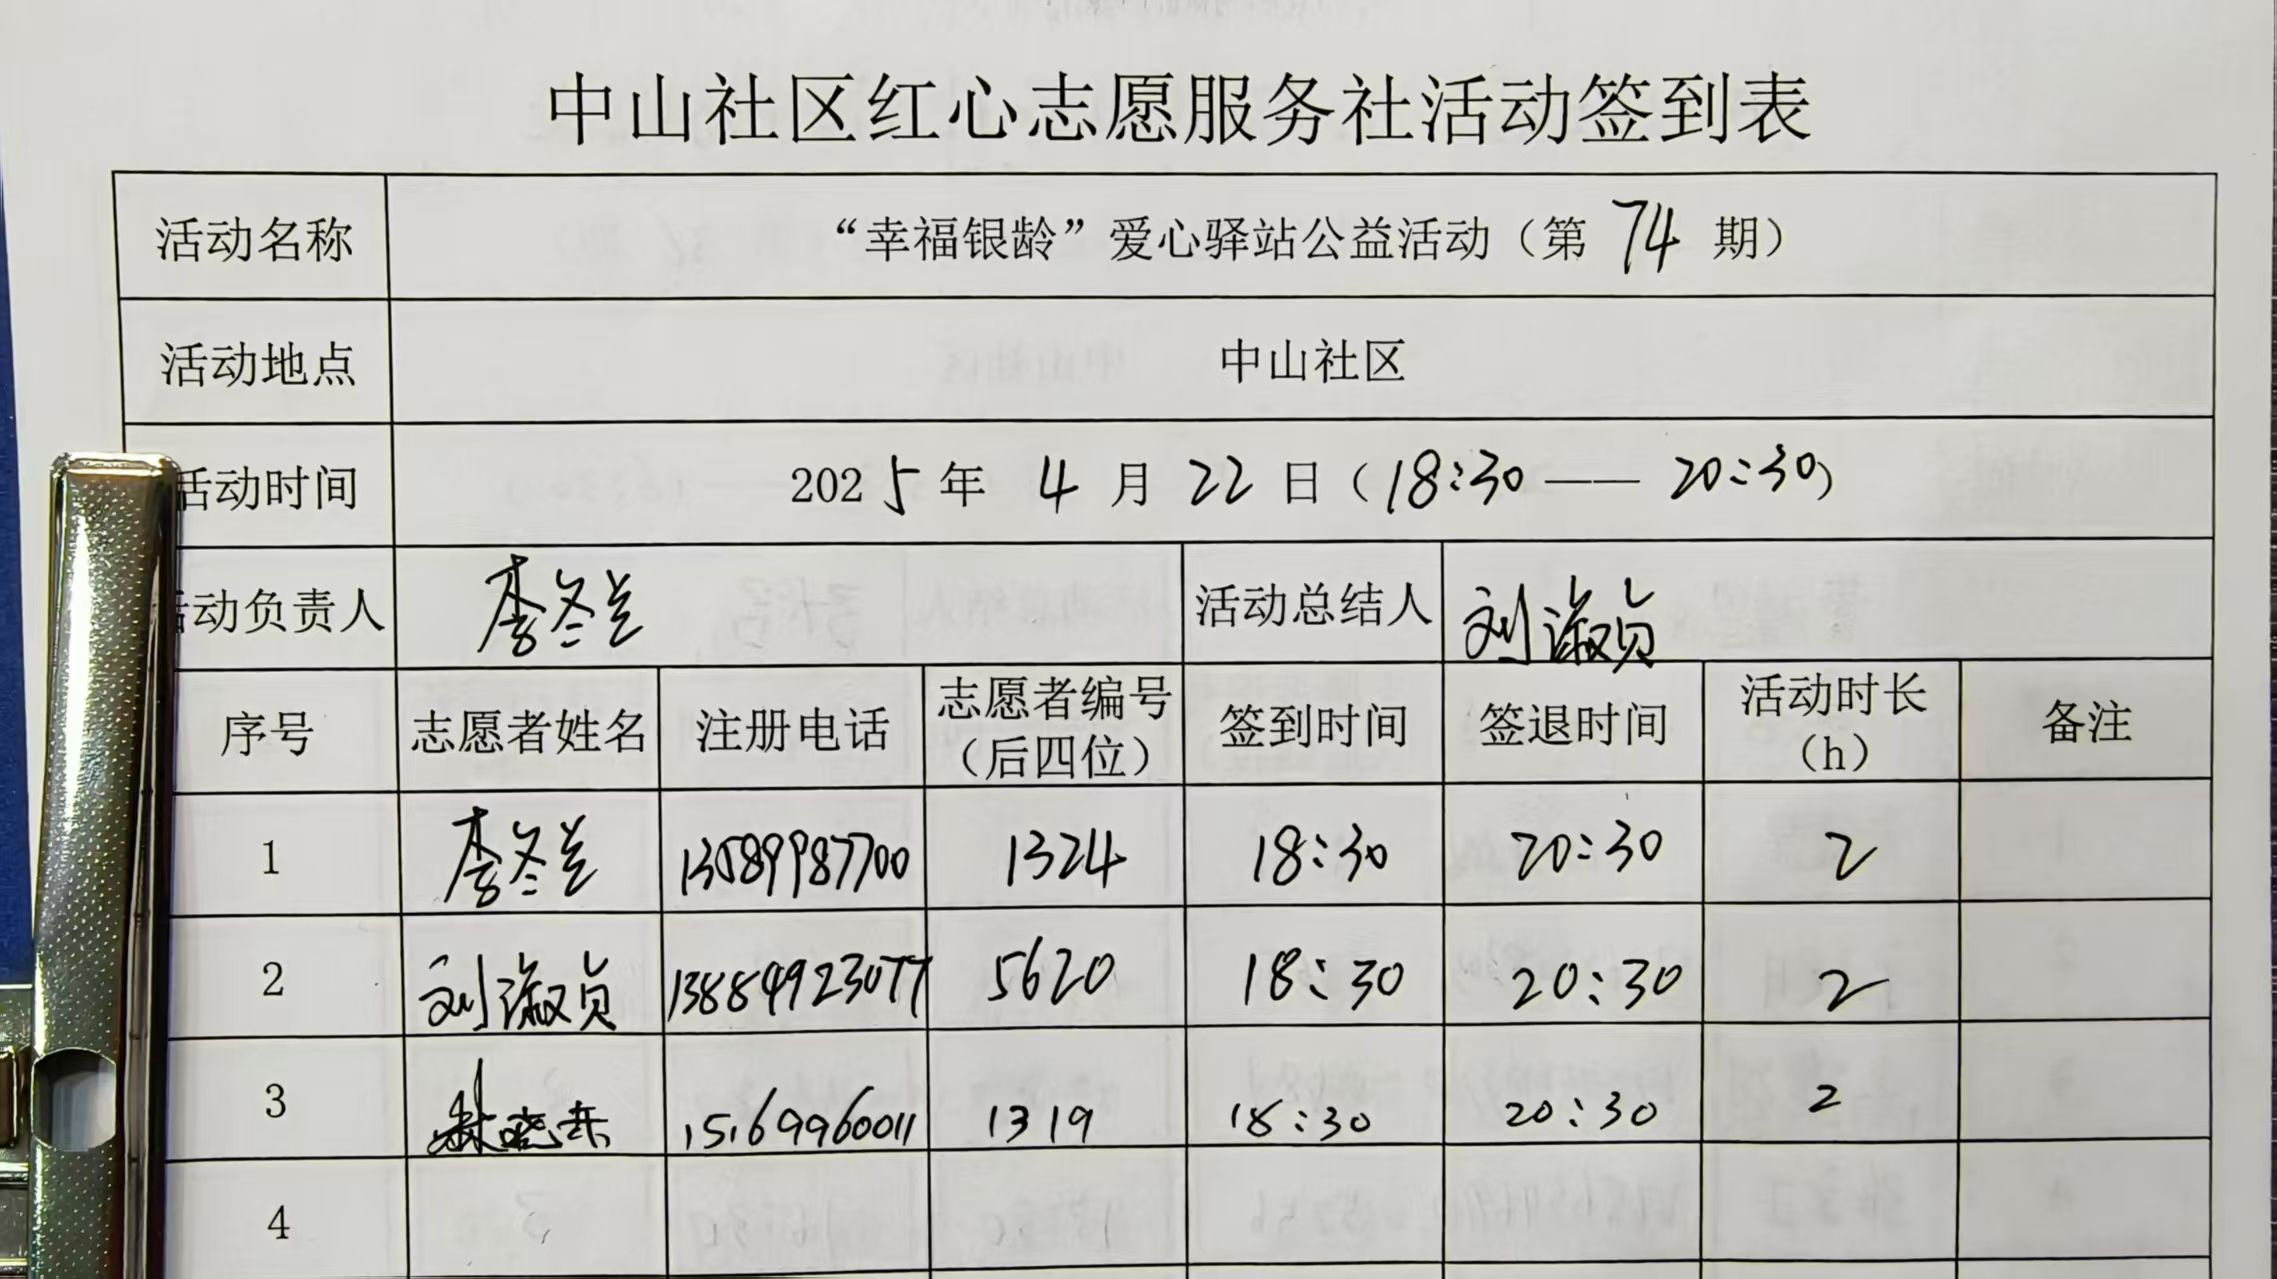 中山社区红心志愿服务社活动签到表
活动名称 “幸福银龄”爱心驿站公益活动（第 74 期）
活动地点 中山社区
活动时间 2025年 4 月 22 日（18:30 —— 20:30）
活动负责人 李冬兰 活动总结人 刘淑贞
序号 志愿者姓名 注册电话 志愿者编号（后四位） 签到时间 签退时间 活动时长（h） 备注
1 李冬兰 13589987700 1324 18:30 20:30 2
2 刘淑贞 13884923077 5620 18:30 20:30 2
3 晓东 15169960011 1319 18:30 20:30 2
4